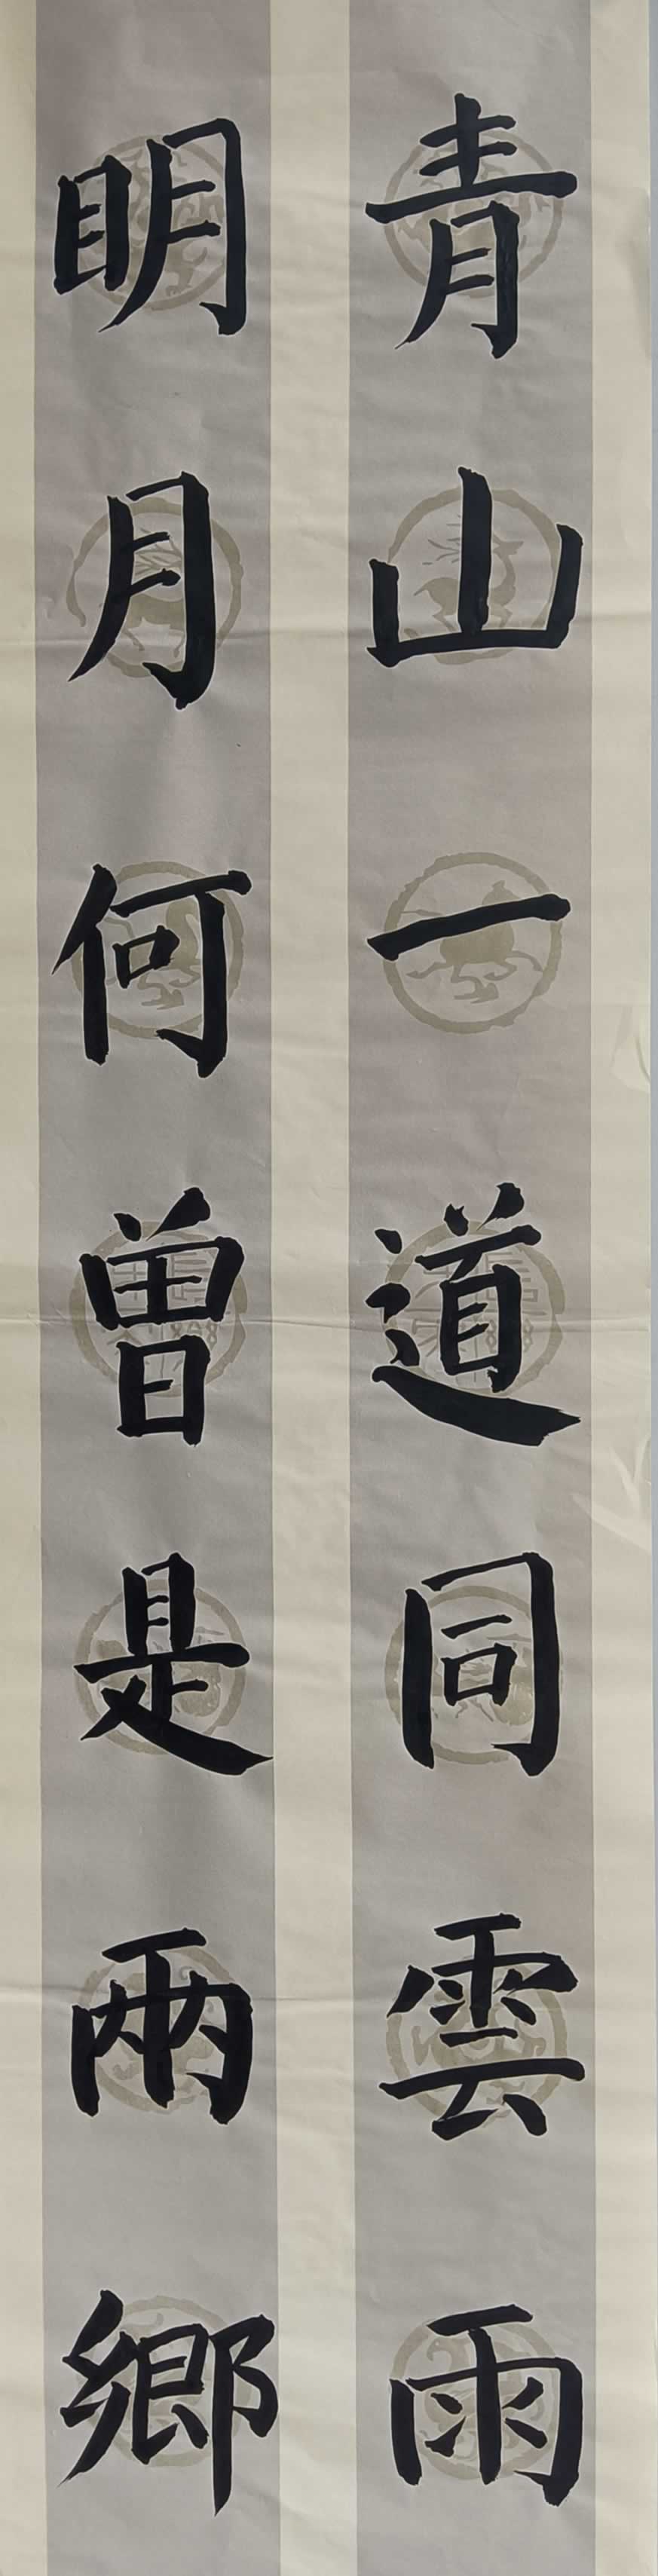 青山一道同雲雨
明月何曽是兩鄉